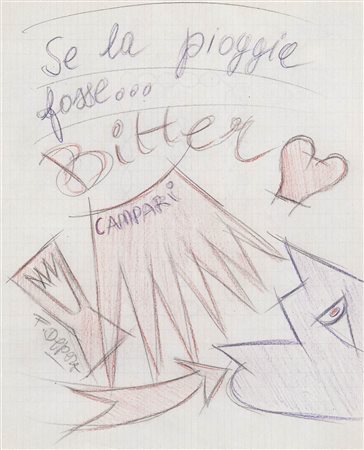 Se la pioggia
fosse...
Bitter
CAMPARI
F. DEPERO